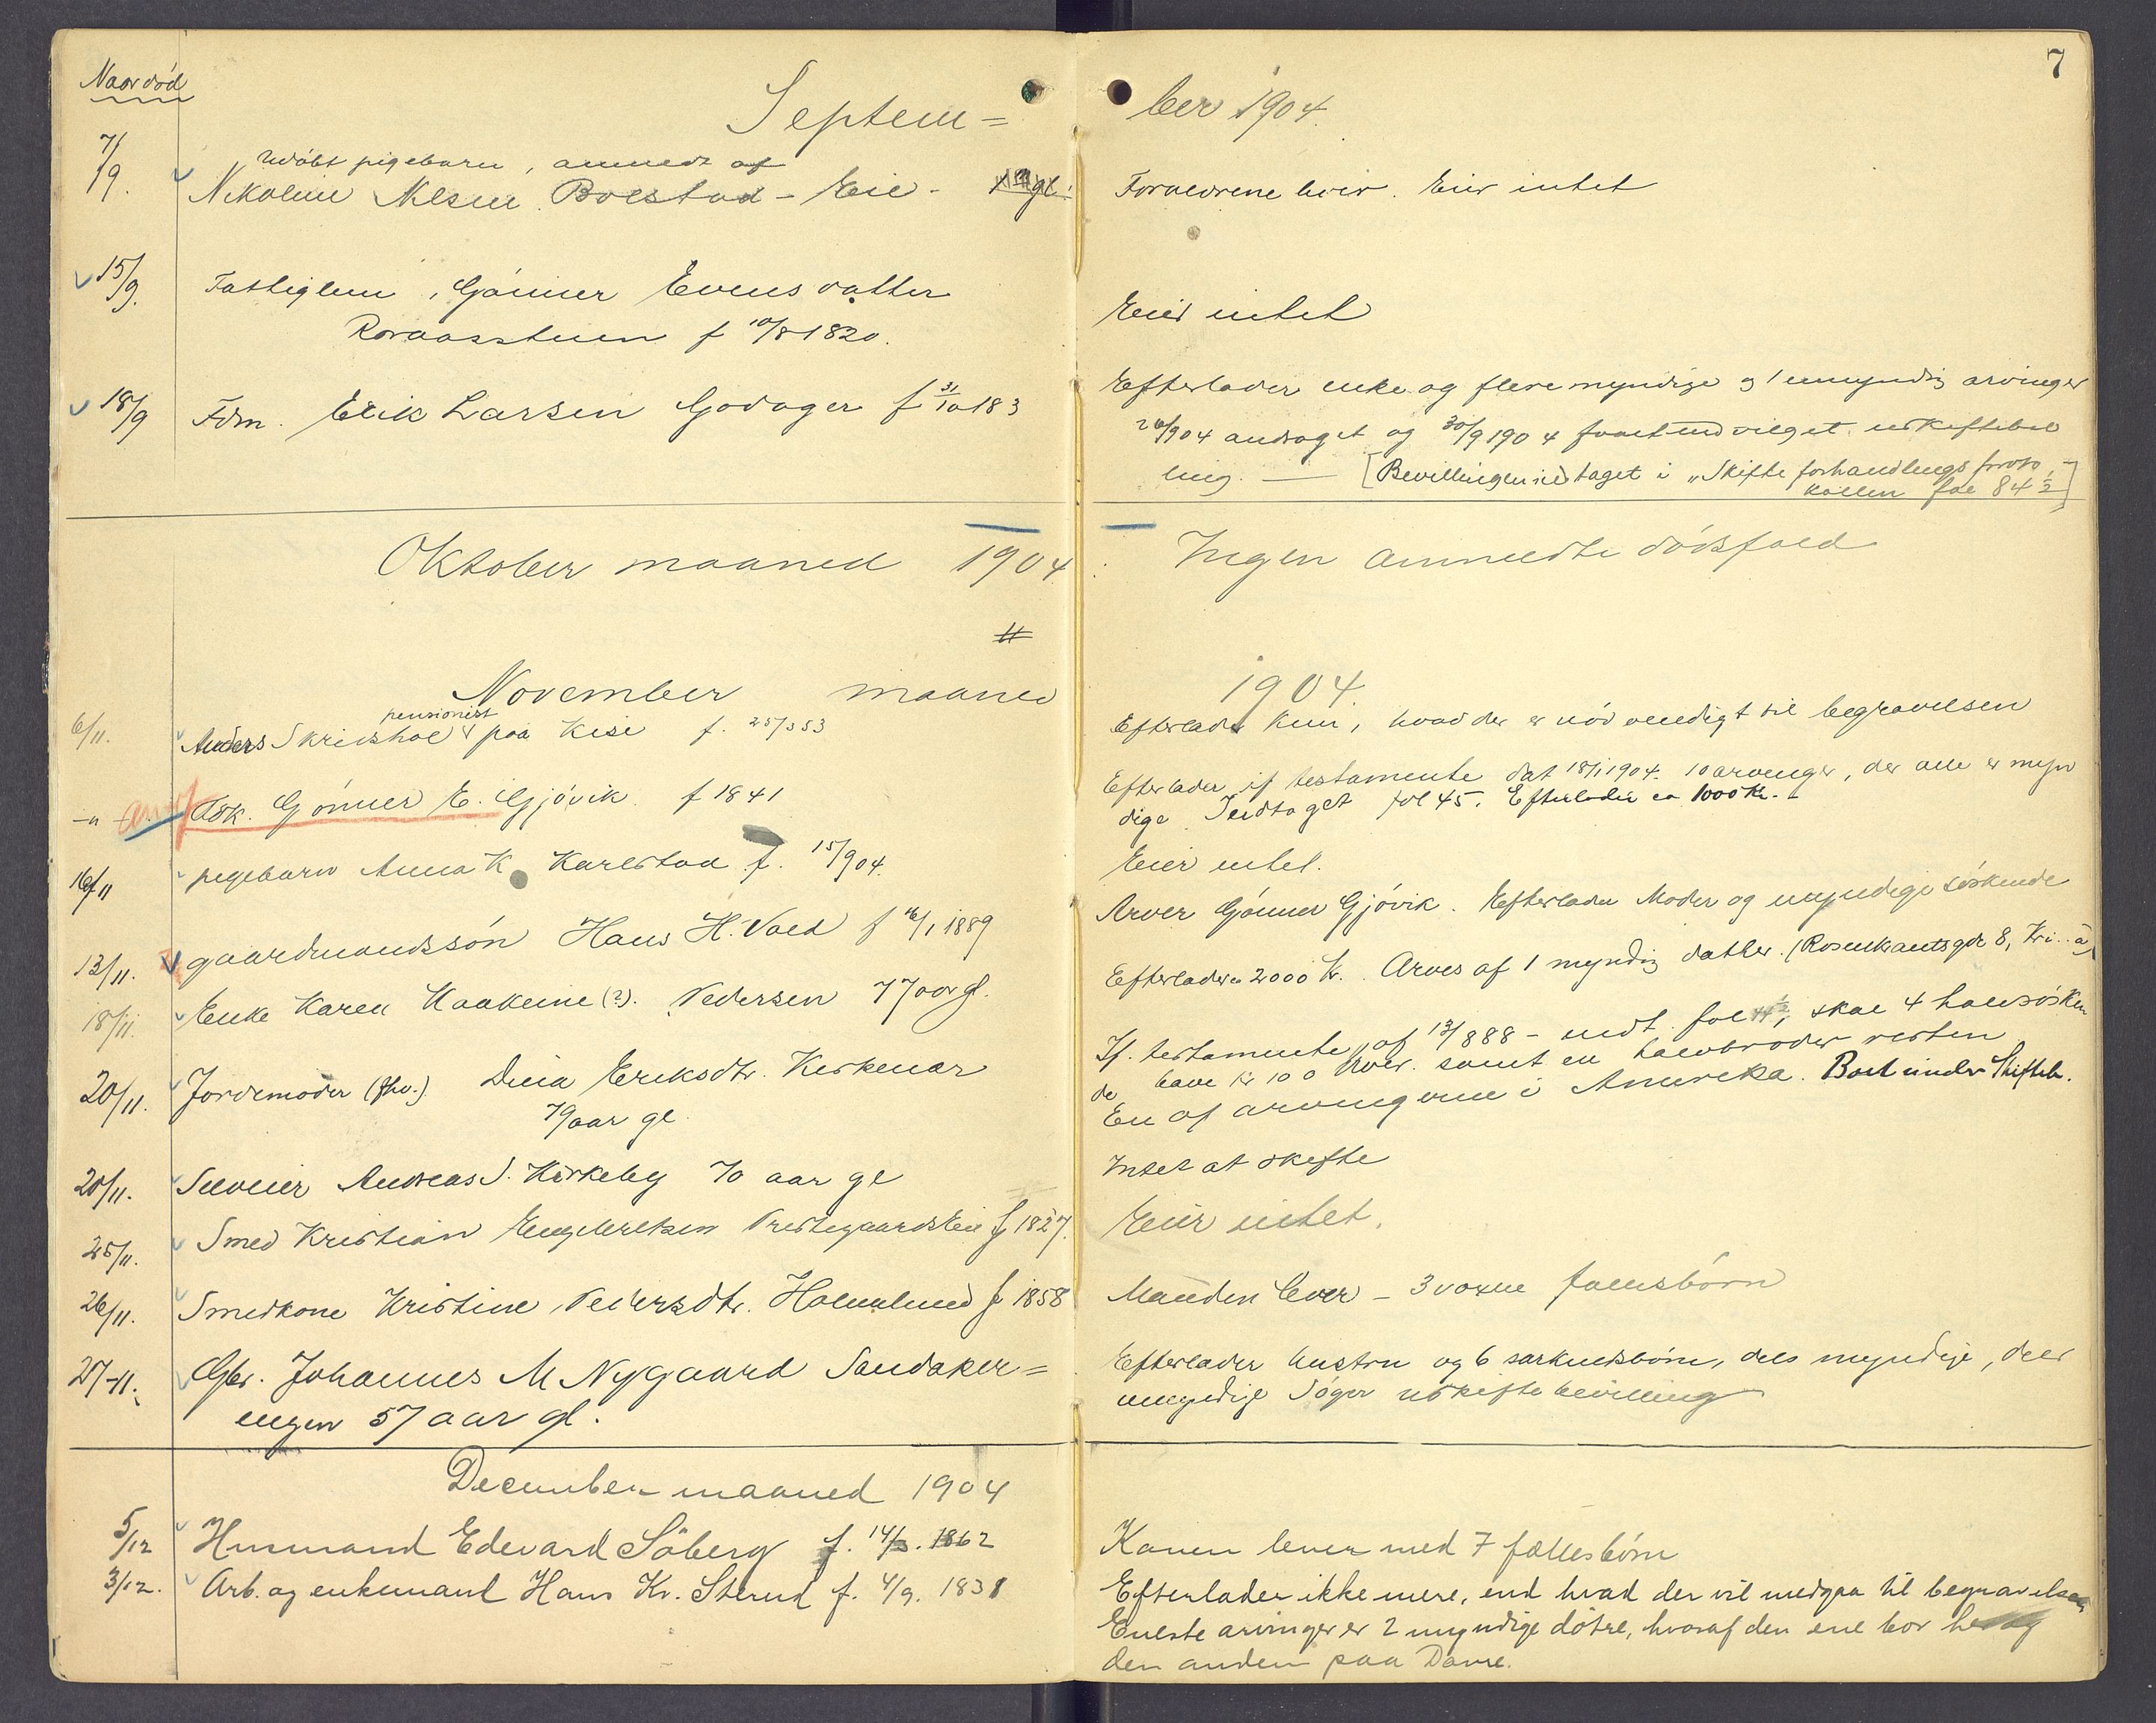 7
Naar død
Septem=
ber 1904.
7/9.
udøbt pigebarn, anmeldt af
Nikoline Nilsen Bolstad - Eie -
Forældrene lever. Eier intet
15/9.
Fattiglem, Gønner Evensdatter
f 10/8 1820.
Eier intet
18/9
Fdm. Erik Larsen Godager f 31/10 183
Efterlader enke og flere myndige og 1 umyndig arvinger
26/904 andraget og 30/9 1904 faaet indvilget uskiftebevil
ling. — [Bevillingen indtaget i "Skifteforhandlingsproto-
kollen fol 84 1/2]
Oktober maaned 1904
Ingen anmeldte dødsfald
November maaned
1904.
6/11.
pensionist
Anders Skridshol paa Kise f. 25/3 53
Efterlader kun, hvad der er nødvendigt til begravelsen
-"-
Gønner E. Gjøvik f 1841
Efterlader if testamente dat 18/1 1904. 10 arvinger, der alle er myn
dige. Indtaget fol 45. Efterlader ca 1000 Kr.
16/11
pigebarn Anna K. Karlstad f. 15/9 04.
Eier intet.
13/11.
gaardmandssøn Hans H. Vold f 1889
Arver Gønner Gjøvik. Efterlader Moder og umyndige søskende
18/11
Enke Karen Haakeine (?). Pedersen 77 aar gl.
Efterlader ca 2000 kr. Arves af 1 myndig datter. (Rosenkrantsgde 8, Kr..a)
20/11.
Jordemoder (fhv.) Dina Eriksdtr. Kirkenær
79 aar gl
If. testamente af 13/8 88 - indt. fol skal 4 halvsøsken
de have kr 100 hver. samt en halvbroder resten
En af arvingerne i Amerika. Boet under Skifteb.
20/11.
Selveier Andreas J. Kirkeby 70 aar gl
Intet at skifte
25/11.
Smed Kristian Engebretsen Prestegaardseie f 1827.
Eier intet.
26/11.
Smedkone Kristine Pedersdtr. Holmlund f 1858
Manden lever - 3 voxne fællesbørn
27-11.
Gbr. Johannes M Nygaard Sandaker=
engen 57 aar gl.
Efterlader hustru og 6 særkuldsbørn, dels myndige, dels
umyndige Søger uskiftebevilling
December maaned 1904
5/12
Husmand Edevard Såberg f. 14/3. 1862
Konen lever med 7 fællesbørn
3/12.
Arb. og enkemand Hans Kr. Sterud f. 4/9. 1831
Efterlader ikke mere, end hvad der vil medgaa til begravelsen
Eneste arvinger er 2 myndige døtre, hvoraf den ene bor her og
den anden paa